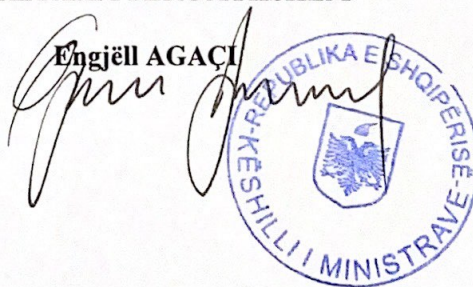 Engjëll AGAÇI
REPUBLIKA E SHQIPËRISË
KËSHILLI I MINISTRAVE